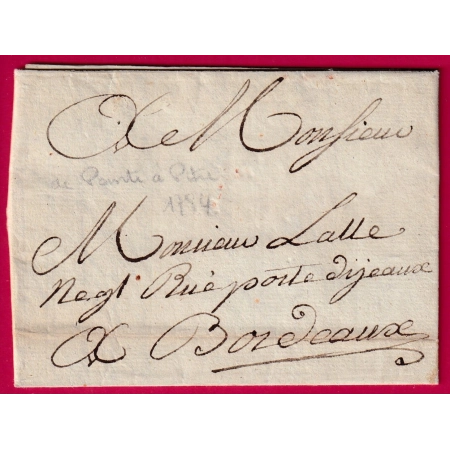 A Monsieur
de Pointe à Pitre
1784
Monsieur Lalle
Negt Rue porte dijeaux
A Bordeaux